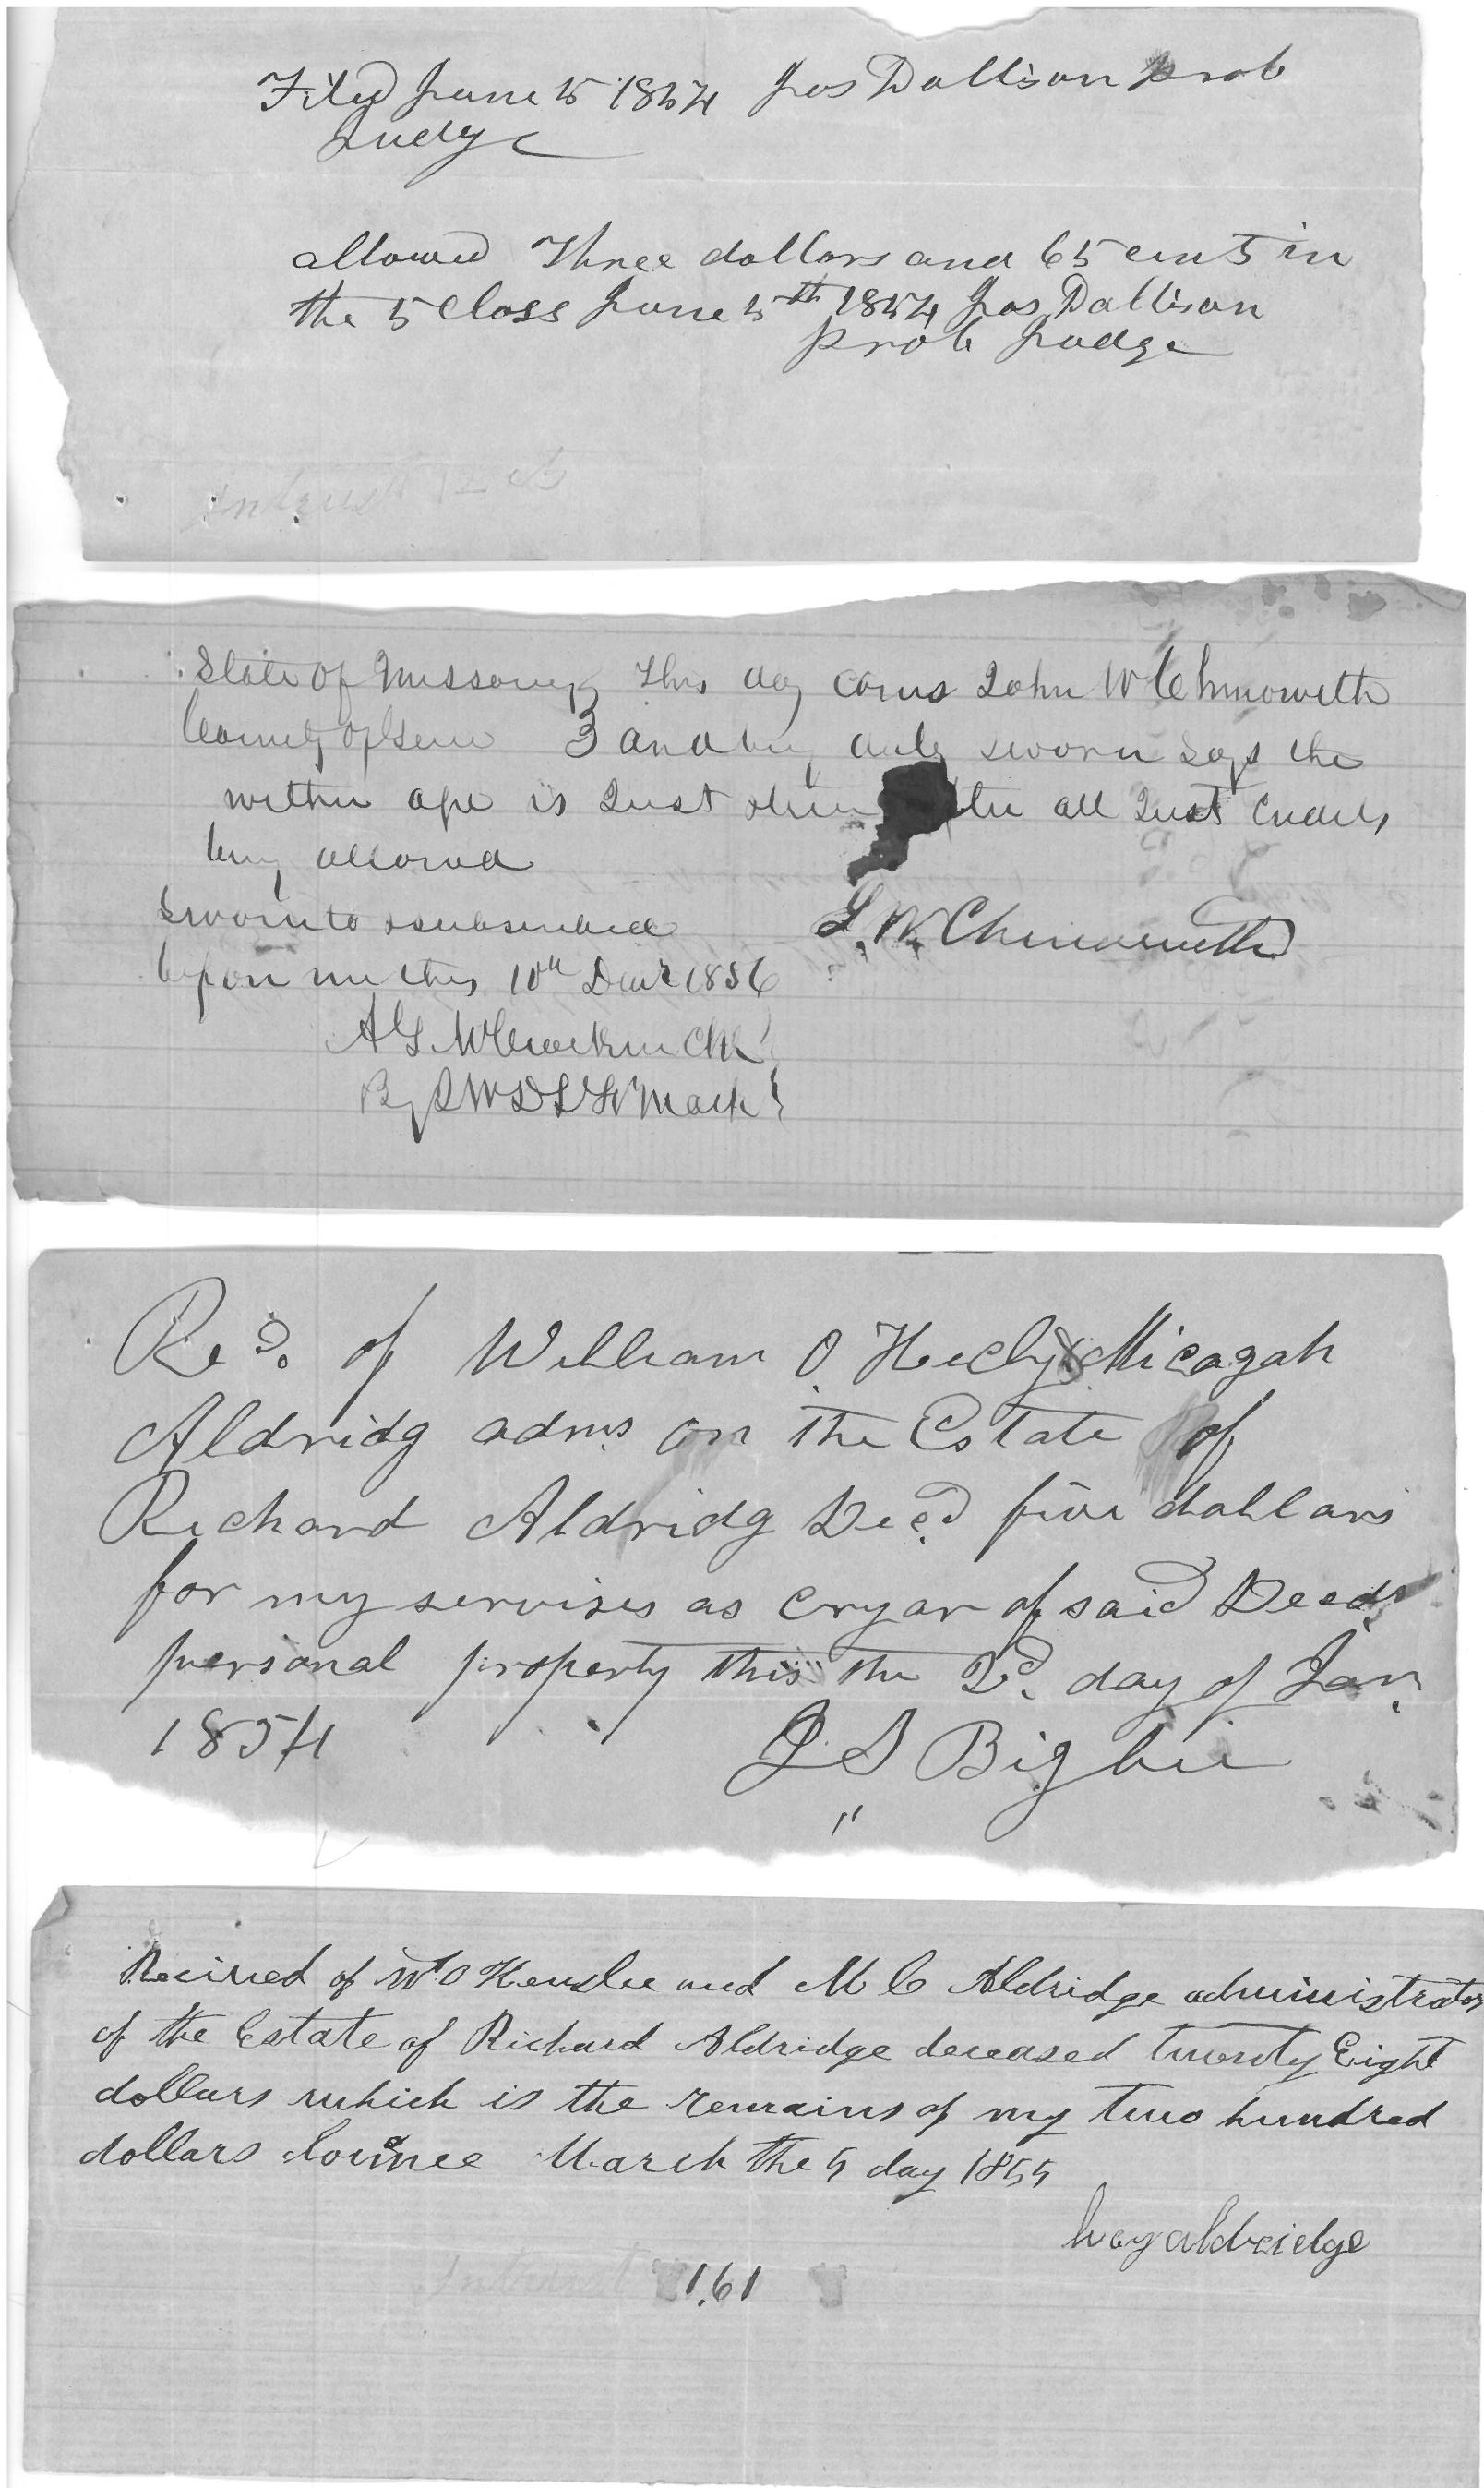 Filed June 5 1854 Jos Dallison Prob
Judge
allowed Three dollars and 65 cents in
the 5 Class June 5th 1854 Jos Dallison
Prob Judge
Intrust 12 cts
State of Missoury This day coms John W Chinowith
County of 3 and being duly sworn says the
within is Just all Just Credits
being allowed
Sworn to & subscribed
before me this 10th Decr 1856
J. W. Chinowith
A G Clk
By
Recd. of William O Hecly & Micagah
Aldridg adms on the Estate of
Richard Aldridg Decd five dollars
for my servises as cryar of said Decds
personal property this the 2d. day of Jan.
1854
J S Bigbie
"
Recived of Wm O Henslee and M C Aldridge administrators
of the Estate of Richard Aldridge deceased twenty Eight
dollars which is the remains of my two hundred
dollars March the 5 day 1855
aldreidge
1.61